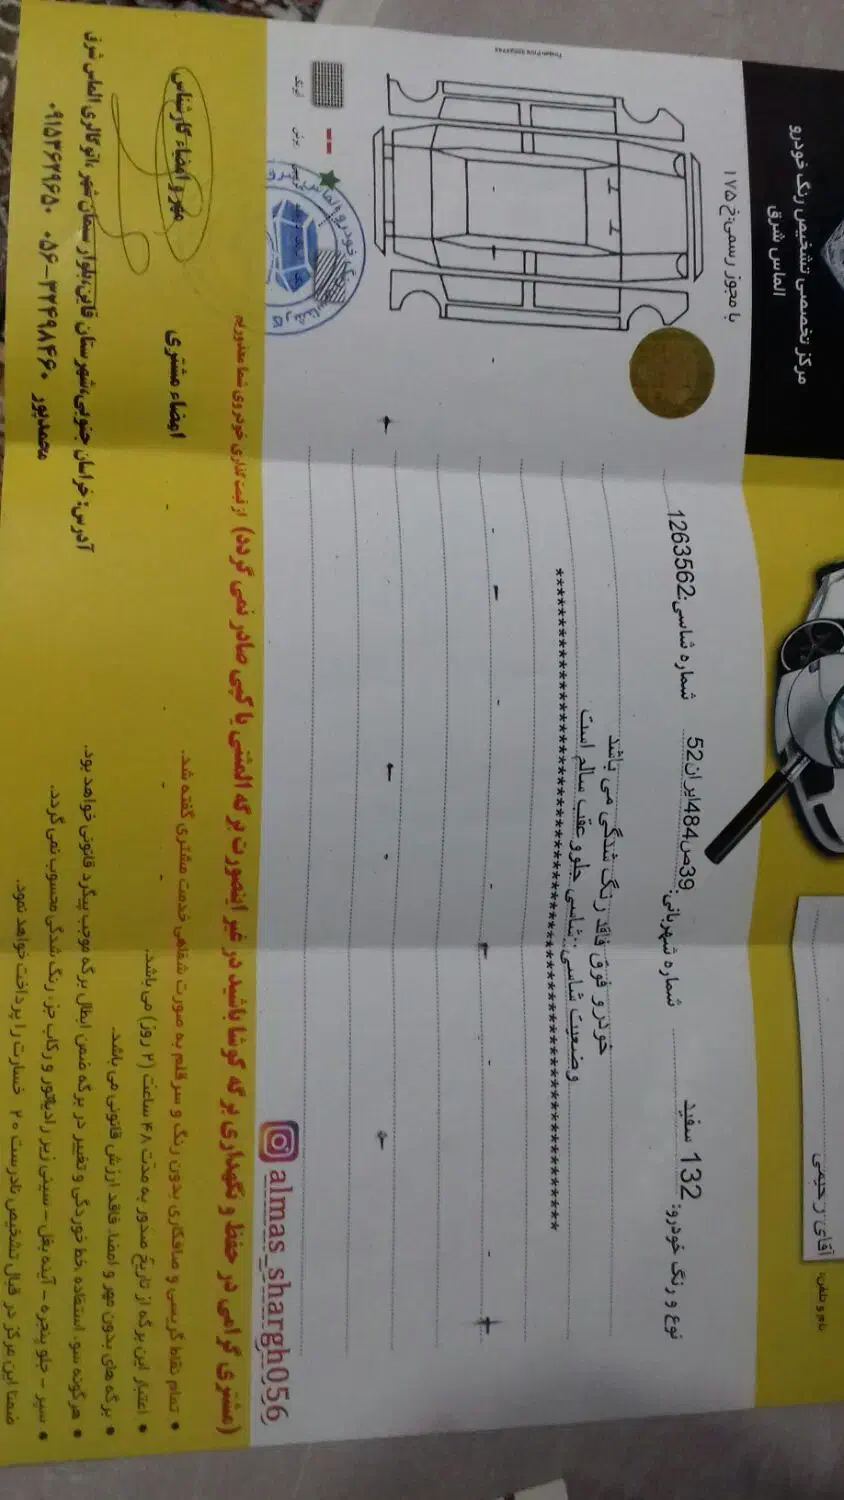 مرکز تخصصی تشخیص رنگ خودرو
الماس شرق
با مجوز رسمی: خ ۱۷۵
نام و تلفن:
آقای رحیمی
نوع و رنگ خودرو: 132 سفید
شماره شهربانی: 39ص484ایران52
شماره شاسی: 1263562
خودرو فوق فاقد رنگ شدگی می باشد
وضعیت شاسی: شاسی جلو و عقب سالم است
almas_shargh056
(مشتری گرامی در حفظ و نگهداری برگه کوشا باشید در غیر اینصورت برگه المثنی یا کپی صادر نمی گردد)
از ثبت گذاری خودروی شما معذوریم
• تمام نقاط گریسی و صافکاری بدون رنگ و سر قلم به صورت شفاهی خدمت مشتری گفته شد.
• اعتبار این برگه از تاریخ صدور به مدت ۴۸ ساعت (۲ روز) می باشد.
• برگه های بدون مهر و امضا، فاقد ارزش قانونی می باشد.
• هرگونه سو، استفاده، خط خوردگی و تغییر در برگه ضمن ابطال برگه موجب پیگرد قانونی خواهد بود.
• سپر - جلو پنجره - آینه بغل - سینی زیر رادیاتور و رکاب جز، رنگ شدگی محسوب نمی گردد.
ضمنا این مرکز در قبال تشخیص نادرست ۲۰ خسارت را پرداخت خواهد نمود.
مهر و امضاء کارشناس
امضاء مشتری
آدرس: خراسان جنوبی،شهرستان قاین،بلوار سمان شهر ،اتوگالری الماس شرق
۰۹۱۵۳۶۲۹۶۵۰ ۰۵۶-۳۲۴۹۸۴۶۰ محمدپور